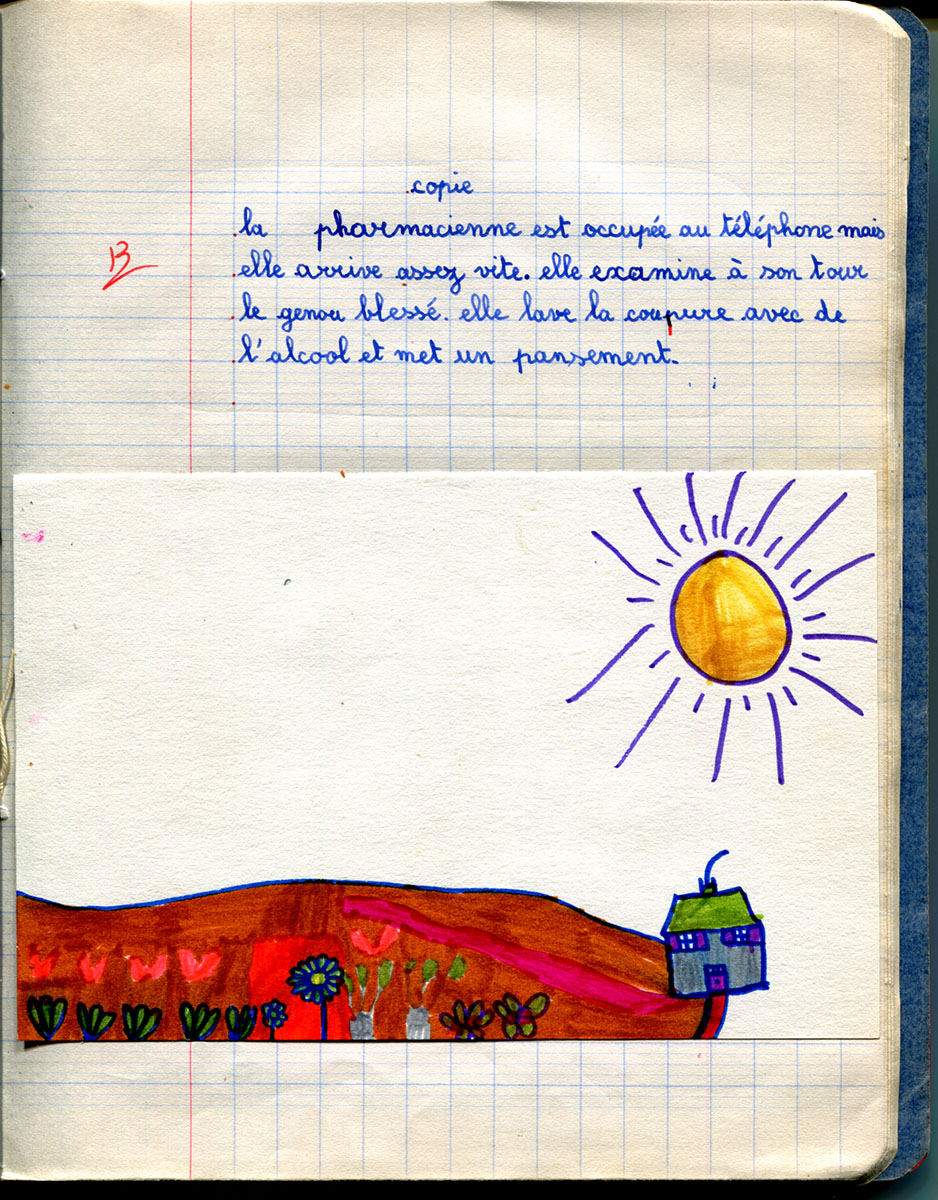 copie
la pharmacienne est occupée au téléphone mais
elle arrive assez vite. elle examine à son tour
le genou blessé. elle lave la coupure avec de
l'alcool et met un pansement.